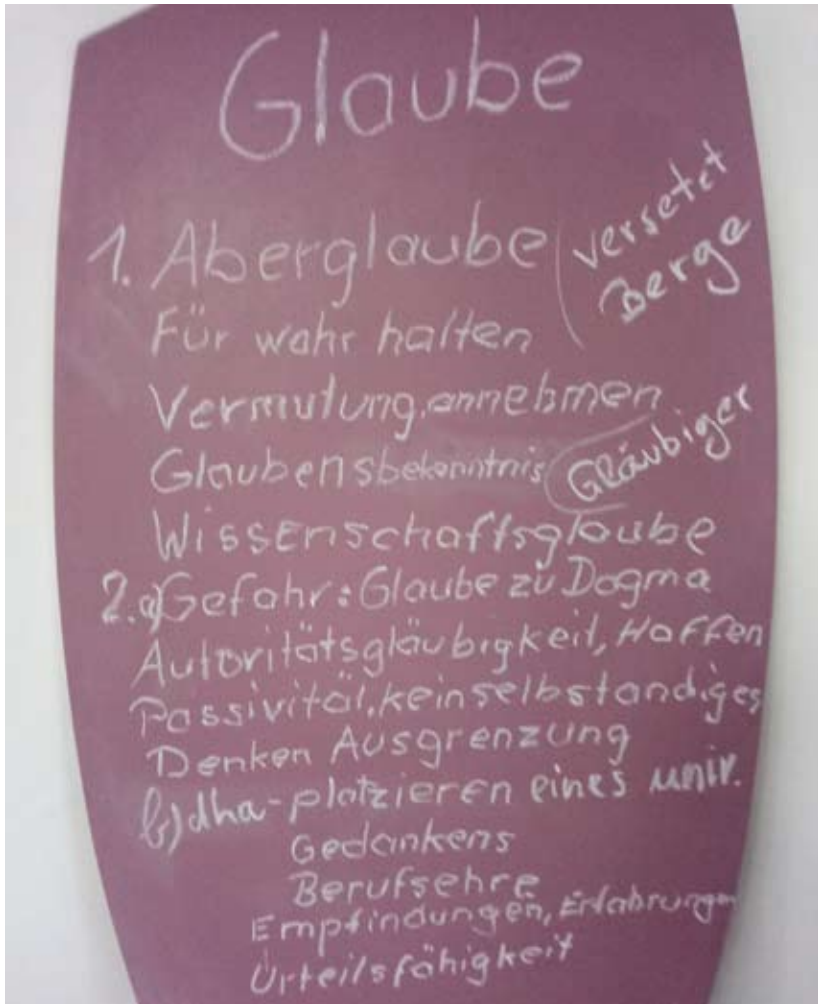 Glaube
1. Aberglaube (versetzt
Berge
Für wahr halten
Vermutung, annehmen
Glaubensbekenntnis (Gläubiger
Wissenschaftsglaube
2.a) Gefahr: Glaube zu Dogma
Autoritätsgläubigkeit, Hoffen
Passivität, kein selbständiges
Denken Ausgrenzung
b) dha-platzieren eines univ.
Gedankens
Berufsehre
Empfindungen, Erfahrungen
Urteilsfähigkeit